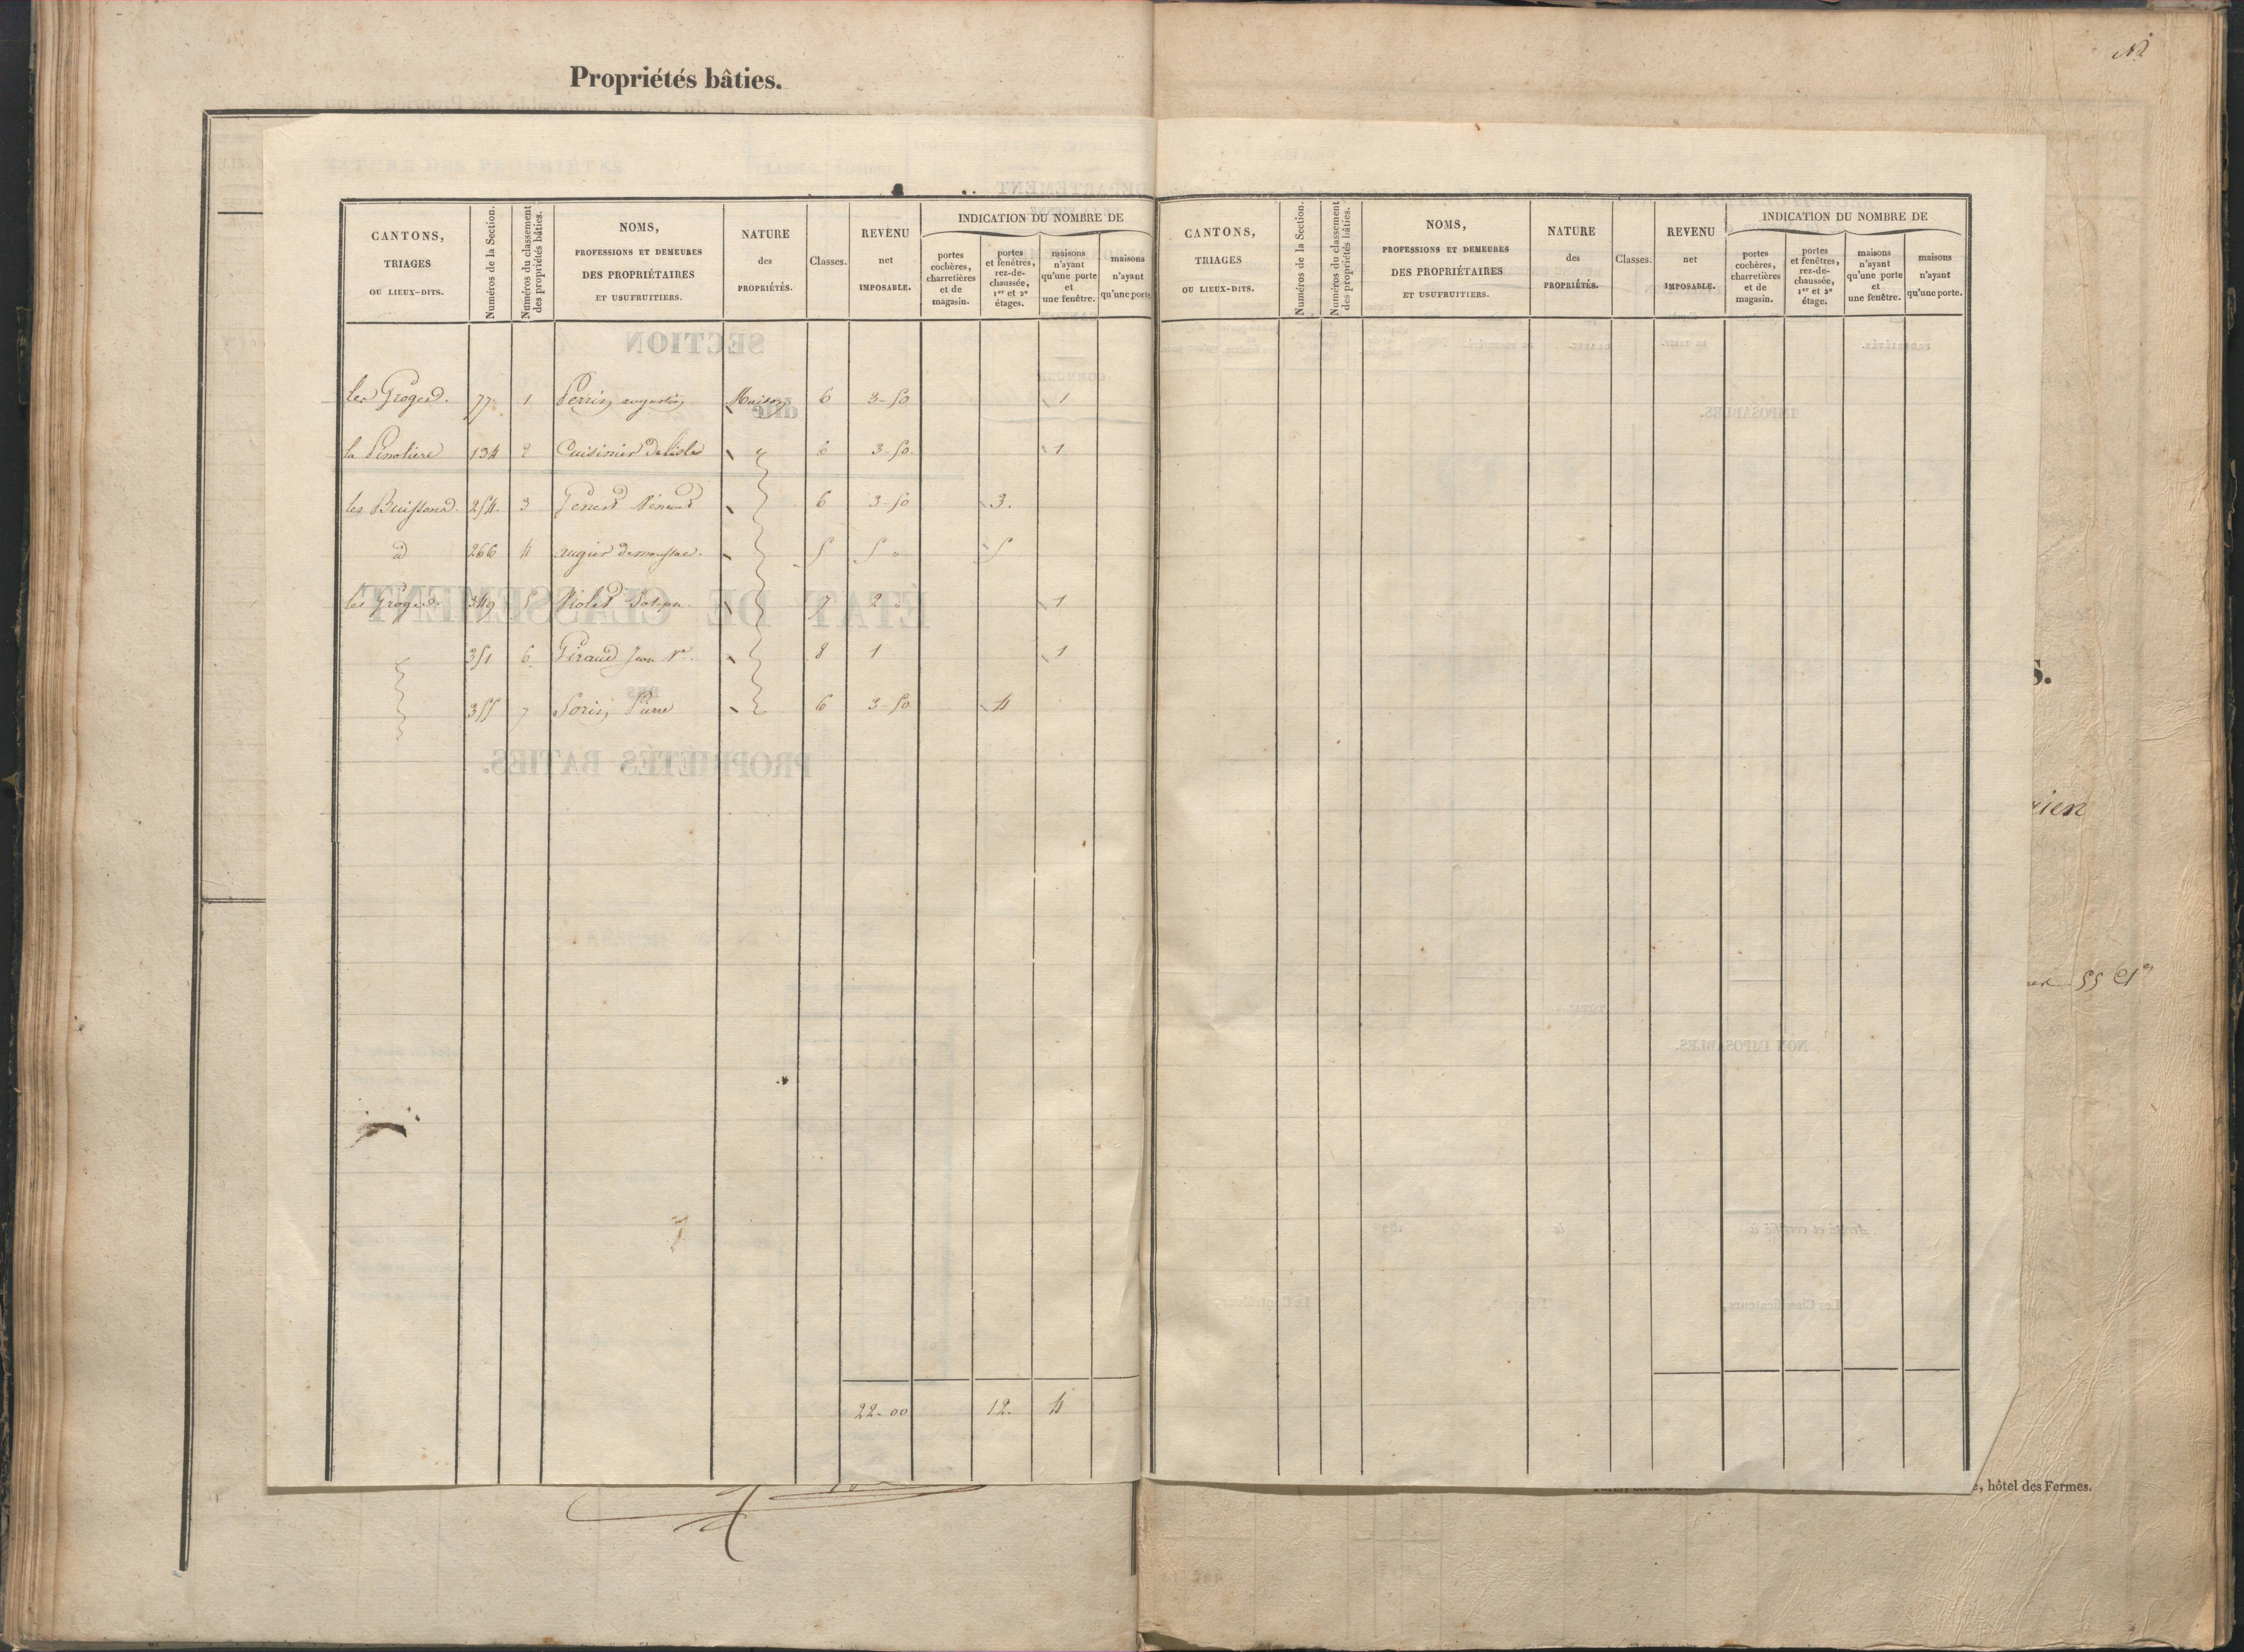 Propriétés bâties.
CANTONS, TRIAGES OU LIEUX-DITS. | Numéros de la Section. | Numéros du classement des propriétés bâties. | NOMS, PROFESSIONS ET DEMEURES DES PROPRIÉTAIRES ET USUFRUITIERS. | NATURE des PROPRIÉTÉS. | Classes. | REVENU net IMPOSABLE. | INDICATION DU NOMBRE DE | portes cochères, charretières et de magasin. | portes et fenêtres, rez-de-chaussée, 1er et 2e étages. | maisons n'ayant qu'une porte et une fenêtre. | maisons n'ayant qu'une porte
les Groges. 77. 1 Perrin augustin Maison 6 3-50 1
la Pinotiere 134 2 Cuisinier Delisle 6 3-50. 1
les Buissons. 254. 3 Genest 6 3-50 3.
d 266 4 augier demoussac. 5 5 " 5
les Groges. 349 5 Violet 7 2 " 1
351 6 Giraud Jean Ve. 8 1 1
355 7 Sorin Pierre 6 3-50 4
22-00 12. 4
CANTONS, TRIAGES OU LIEUX-DITS. | Numéros de la Section. | Numéros du classement des propriétés bâties. | NOMS, PROFESSIONS ET DEMEURES DES PROPRIÉTAIRES ET USUFRUITIERS. | NATURE des PROPRIÉTÉS. | Classes. | REVENU net IMPOSABLE. | INDICATION DU NOMBRE DE | portes cochères, charretières et de magasin. | portes et fenêtres, rez-de-chaussée, 1er et 2e étage. | maisons n'ayant qu'une porte et une fenêtre. | maisons n'ayant qu'une porte.
s.
rien
, hôtel des Fermes.